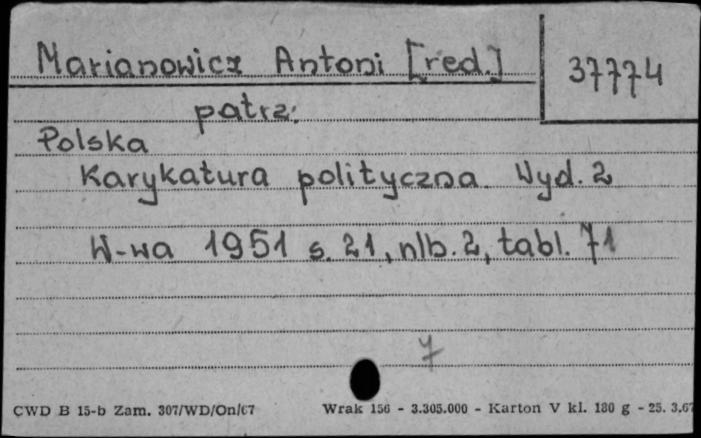 Marianowicz Antoni [red.]
37774
patrz:
Polska
Karykatura polityczna. Wyd. 2
W-wa 1951 s. 21, nlb. 2, tabl. 71
7
CWD B 15-b Zam. 307/WD/On/67 Wrak 156 - 3.305.000 - Karton V kl. 180 g - 25. 3.67